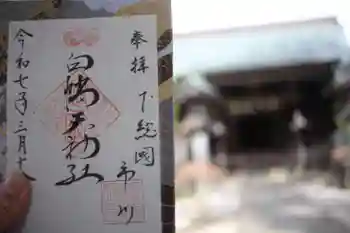 奉拝 下総國
市川
白幡天神社
令和七年三月十